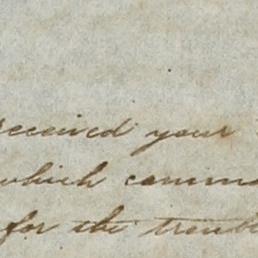 received your
which comm
for the troub